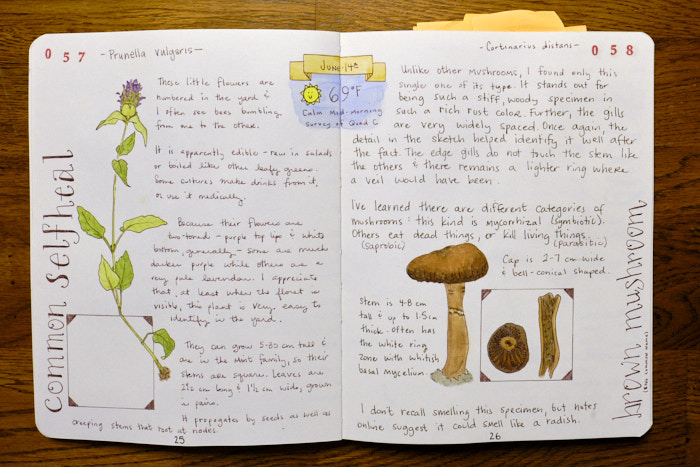 057
- Prunella vulgaris -
These little flowers are
numbered in the yard &
I often see bees bumbling
from one to the other.
It is apparently edible - raw in salads
or boiled like other leafy greens.
Some cultures make drinks from it,
or use it medicinally.
Because their flowers are
two-toned - purple top lips & white
bottom, generally - some are much
darker purple while others are a
very pale lavender. I appreciate
that, at least when the floret is
visible, this plant is very easy to
identify in the yard.
They can grow 5-30 cm tall &
are in the mint family, so their
stems are square. Leaves are
2½ cm long & 1½ cm wide, grown
in pairs.
It propagates by seeds as well as
creeping stems that root at nodes.
25
common selfheal
June 14th
69°F
Calm Mid-morning
Survey of Quad C
- Cortinarius distans -
058
Unlike other mushrooms, I found only this
single one of its type. It stands out for
being such a stiff, woody specimen in
such a rich rust color. Further, the gills
are very widely spaced. Once again, the
detail in the sketch helped identify it well after
the fact. The edge gills do not touch the stem like
the others & there remains a lighter ring where
a veil would have been.
I've learned there are different categories of
mushrooms: this kind is mycorrhizal (symbiotic).
Others eat dead things, or kill living things.
(saprobic) (parasitic)
Cap is 2-7 cm wide
& bell-conical shaped.
Stem is 4-8 cm
tall & up to 1.5cm
thick. Often has
the white ring
zone with whitish
basal mycelium.
I don't recall smelling this specimen, but notes
online suggest it could smell like a radish.
26
brown mushroom